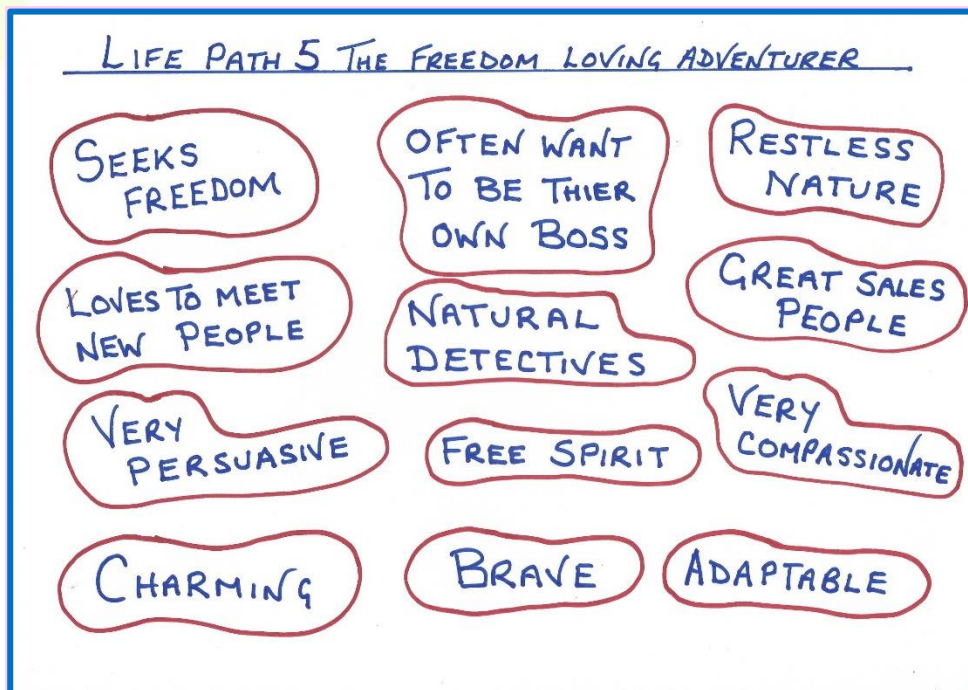 LIFE PATH 5 THE FREEDOM LOVING ADVENTURER
SEEKS
FREEDOM
OFTEN WANT
TO BE THIER
OWN BOSS
RESTLESS
NATURE
LOVES TO MEET
NEW PEOPLE
NATURAL
DETECTIVES
GREAT SALES
PEOPLE
VERY
PERSUASIVE
FREE SPIRIT
VERY
COMPASSIONATE
CHARMING
BRAVE
ADAPTABLE